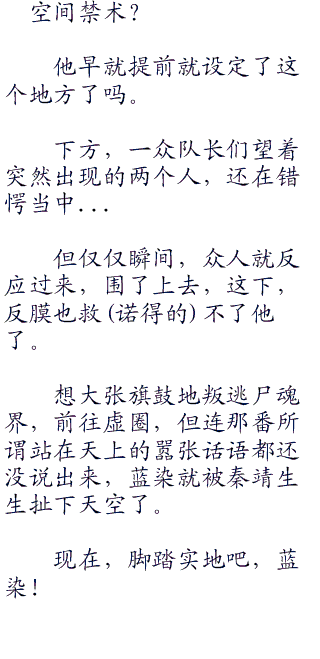 空间禁术?
他早就提前就设定了这
个地方了吗。
下方，一众队长们望着
突然出现的两个人，还在错
愕当中...
但仅仅瞬间，众人就反
应过来，围了上去，这下，
反膜也救(诺得的)不了他
了。
想大张旗鼓地叛逃尸魂
界，前往虚圈，但连那番所
谓站在天上的嚣张话语都还
没说出来，蓝染就被秦靖生
生扯下天空了。
现在，脚踏实地吧，蓝
染!